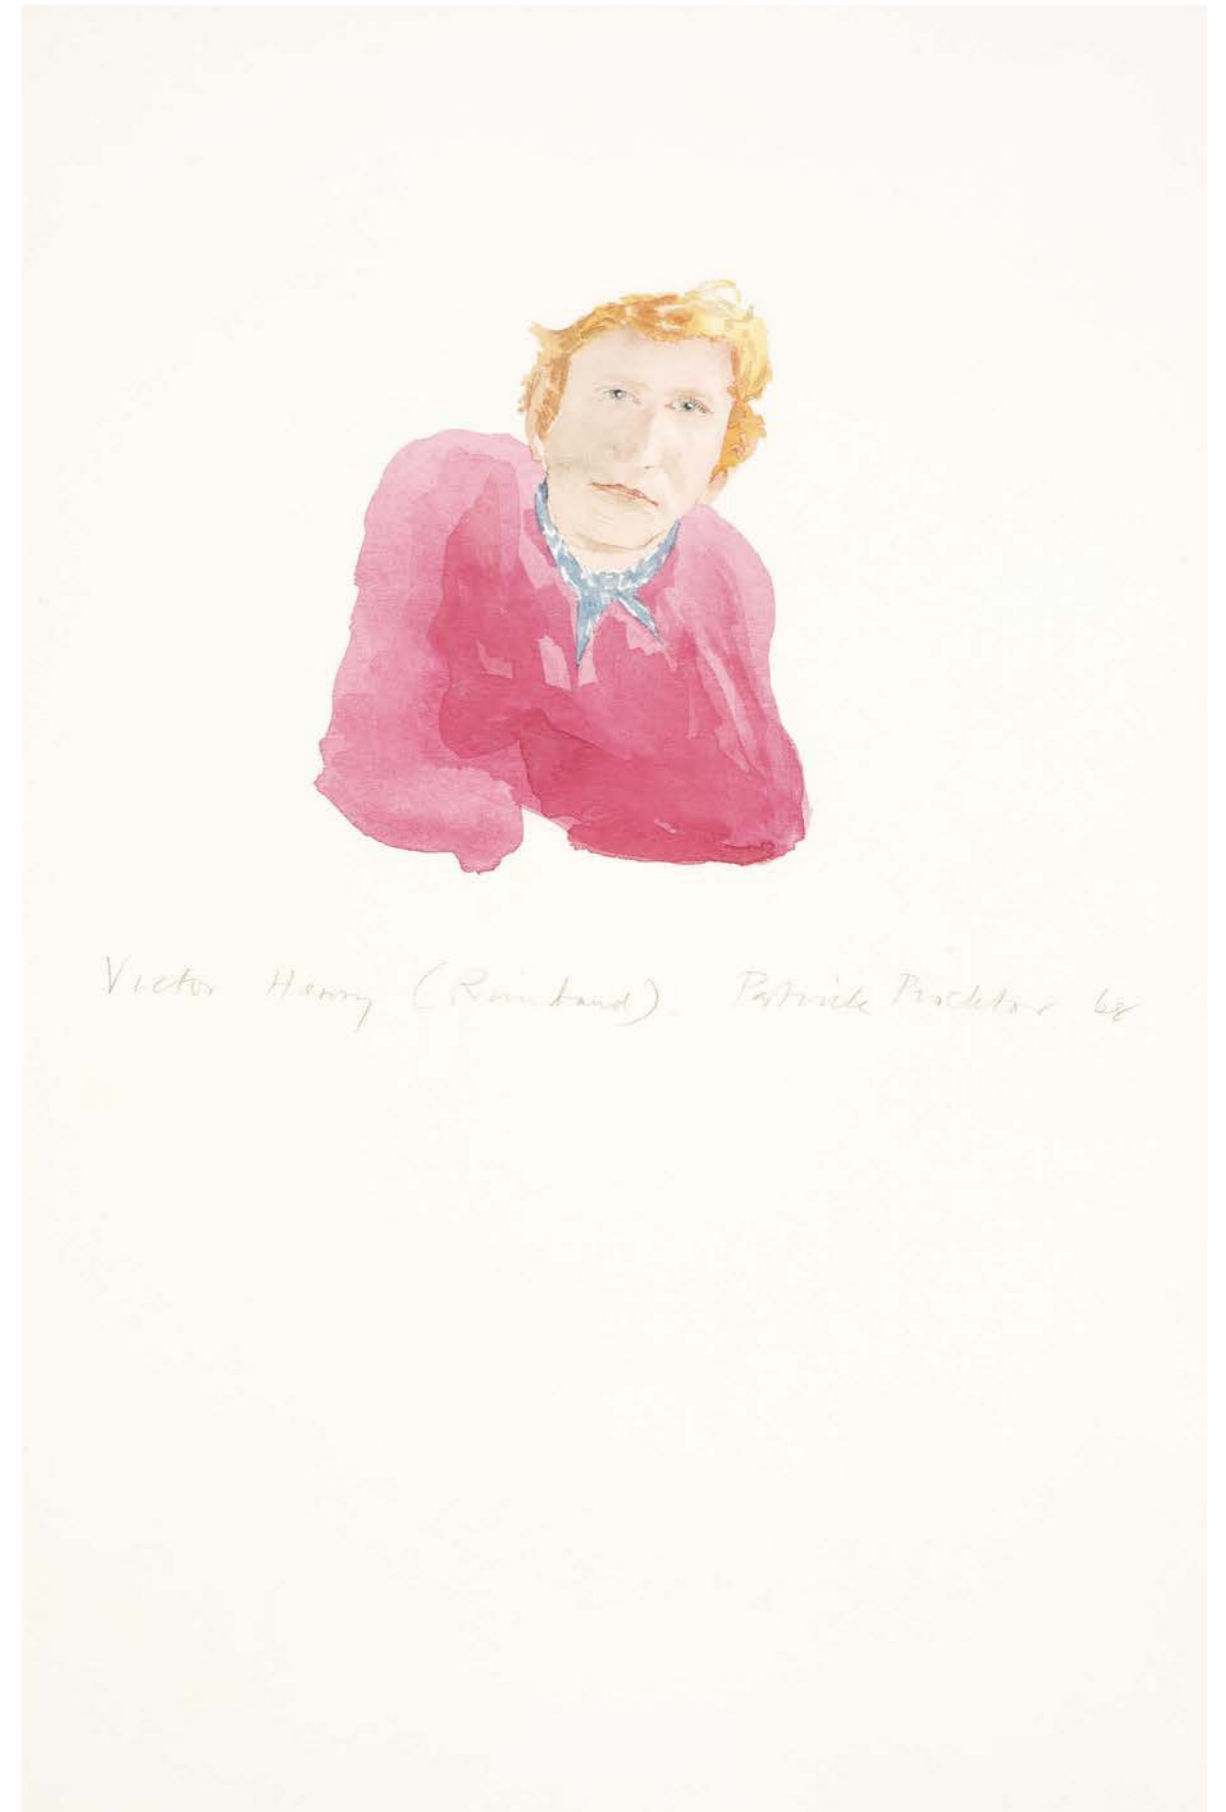 Victor Henry (Rimbaud). Patrick Procktor 68